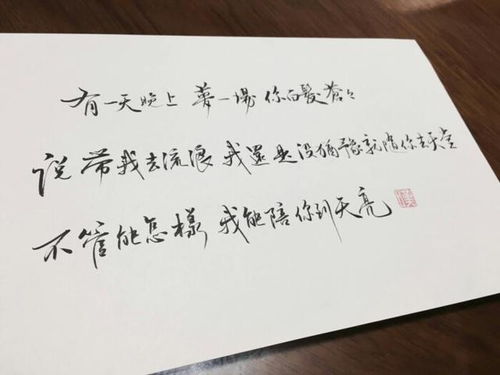 有一天晚上 夢一場 你白髮蒼々
说带我去流浪 我還是没犹豫就随你去天堂
不管能怎樣 我能陪你到天亮